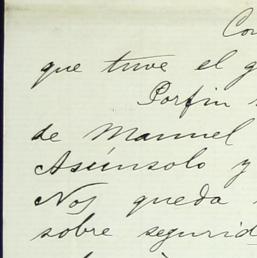 Con
que tuve el g
Porfin
de Manuel
Asúnsolo y
Nos queda
sobre segurid